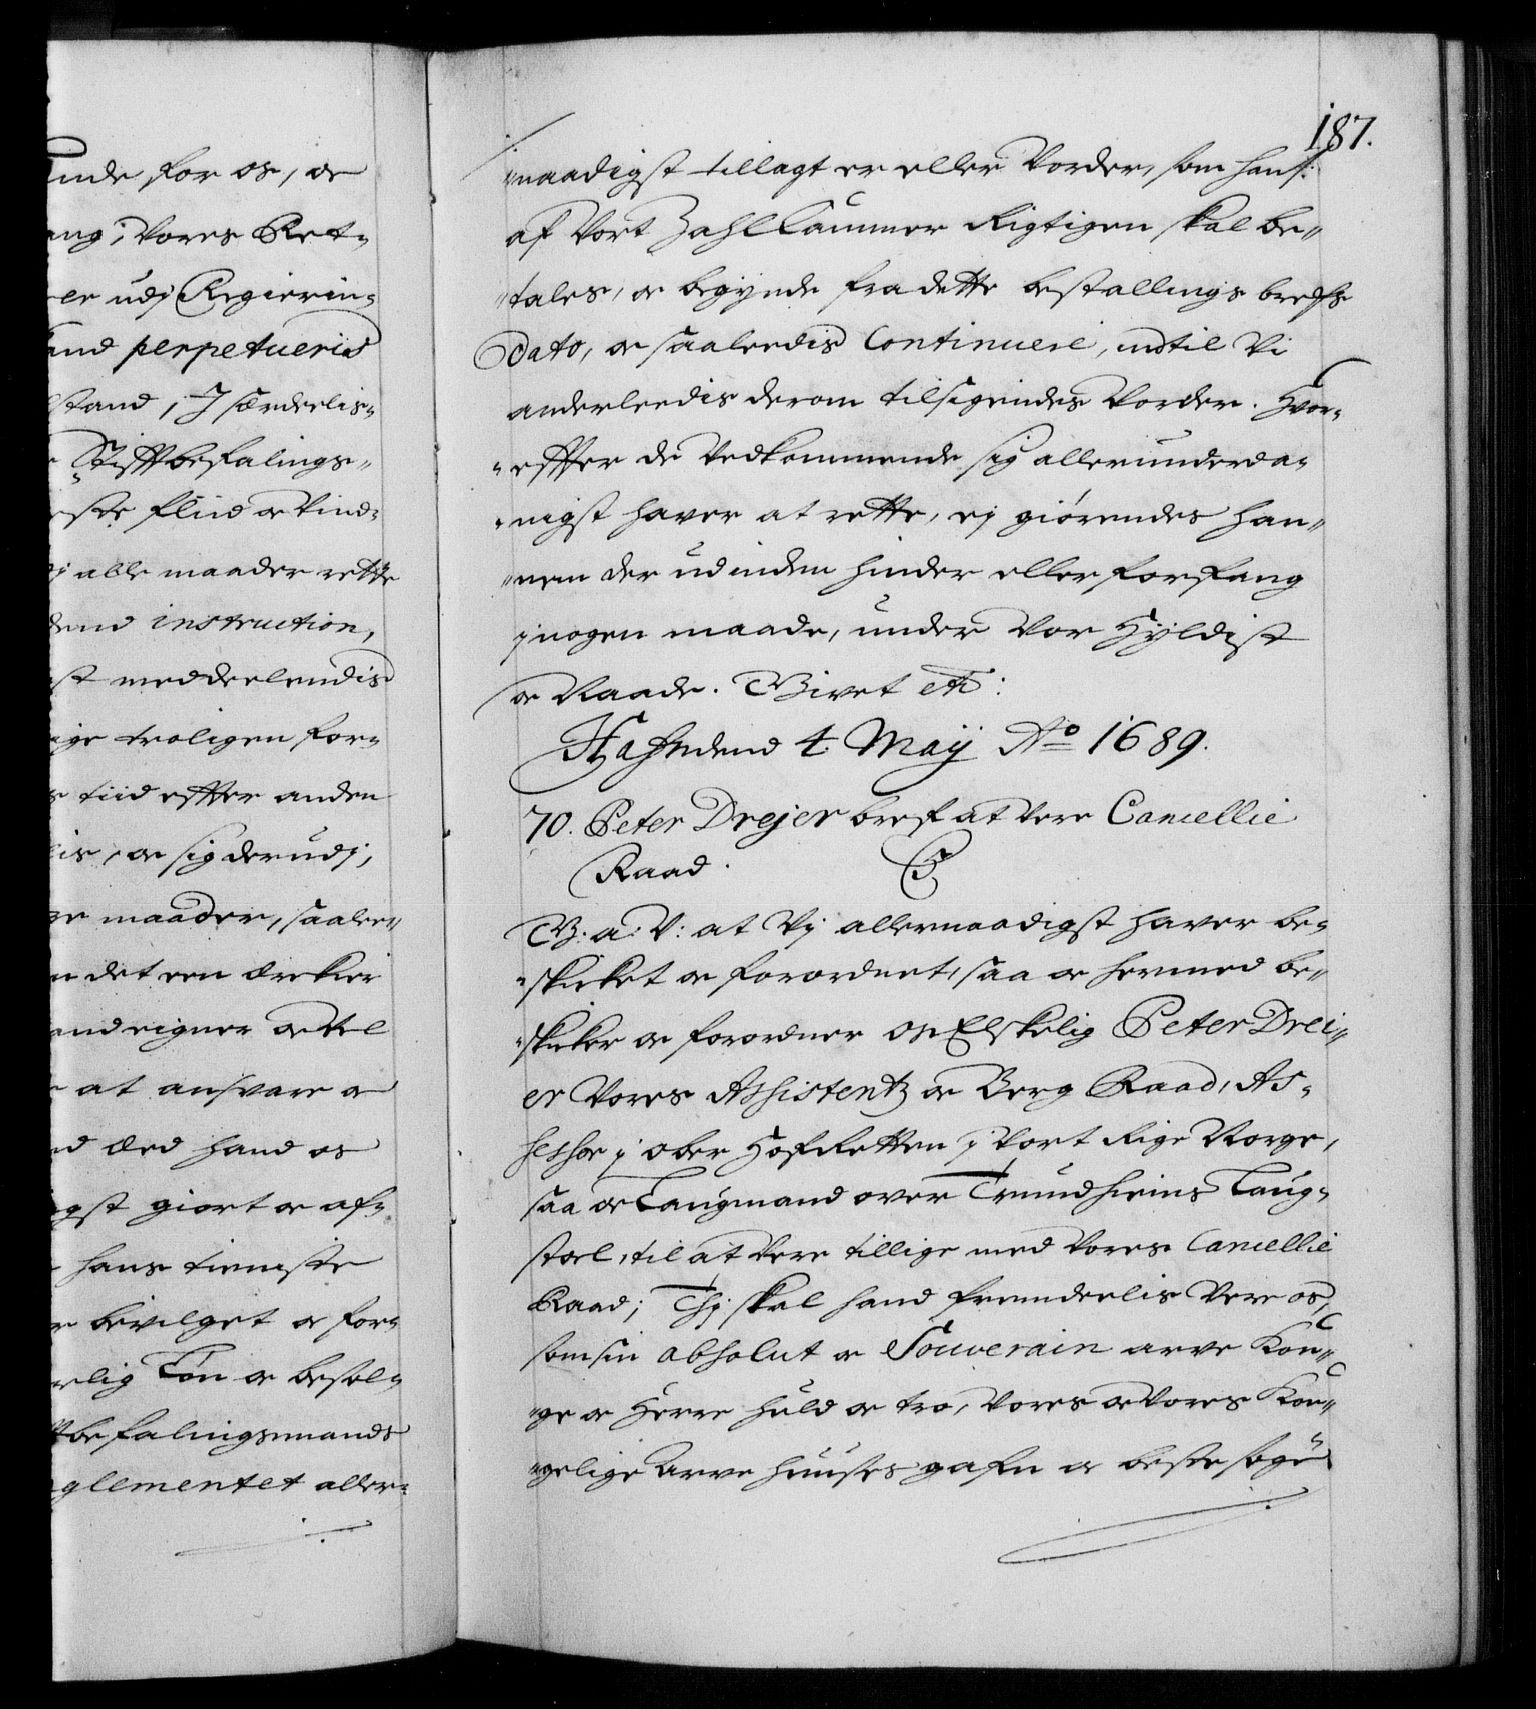 ang i Vores Ret-
er udj Regierin-
and perpetueris
stand, J særdeelis-
Stifftbefalings-
este fliid oc Vind-
j alle maader rette
instruction,
st meddeelendis
ige troligen for-
tiid effter anden
lis, oc sig derudj,
ge maader, saalee-
det een ærekier
and eigner oc vel
at ansvare oc
ed hand os
gst giort oc af-
hans tieniste
bevilget oc for-
rlig Løn oc besol-
befalingsmands
glementet aller-
187.
naadigst tillagt er eller Vorder, som hans
af Vort Zahl Cammer Rigtigen skal be-
tales, oc begynde fra dette bestallings brefs
Dato, oc saaleedis Continuere, indtil Vi
anderleedis derom tilsigendes Vorder. Hvor-
effter de Vedkommende sig allerunderda-
nigst haver at rette, ej giørendes han-
nem der udinden hinder eller forfang
j nogen maade, under Vor Hyldist
oc Naade. Givet etc:
Hafn. dend 4 Maij Ao 1689.
70. Peter Drejer bref at Vere Cancellie
Raad.
G. a. V: at Vj allernaadigst haver be-
skicket oc forordnet, saa oc hermed be-
skicker oc forordner os Elskelig Peter Drei-
er Vores Assistentz oc Berg Raad, As-
sessor j ober Hof Retten j Vort Rige Norge,
saa oc Laugmand over Trundhiems Laug-
stoel, til at Vere tillige med Vores Cancellie
Raad; Thj skal hand fremdeelis Vere os,
som sin absolut oc Souverain arve Kon-
ge oc Herre huld oc tro, Vores oc Vores Kon-
gelige Arve huuses gafn oc beste søge